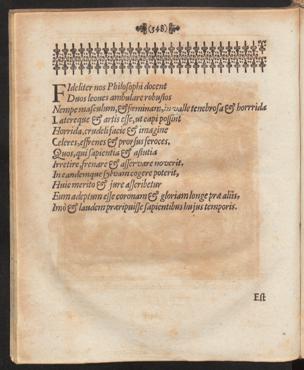 (348)
FIdeliter nos Philosophi docent
Duos leones ambulare robustos
Nempe masculum, & fœminam, in valle tenebrosa & horrida
Latereque & artis esse, ut capi possint
Horrida, crudeli facie & imagine
Celeres, effrenes & prorsus feroces,
Quos, qui sapientia & astutia
Irretire, frenare & asservare noverit,
In eandemque sylvam cogere poterit,
Huic merito & jure asseribetur
Eum adeptum esse coronam & gloriam longe præ aliis,
Imò & laudem præripuisse sapientibus hujus temporis.
Est